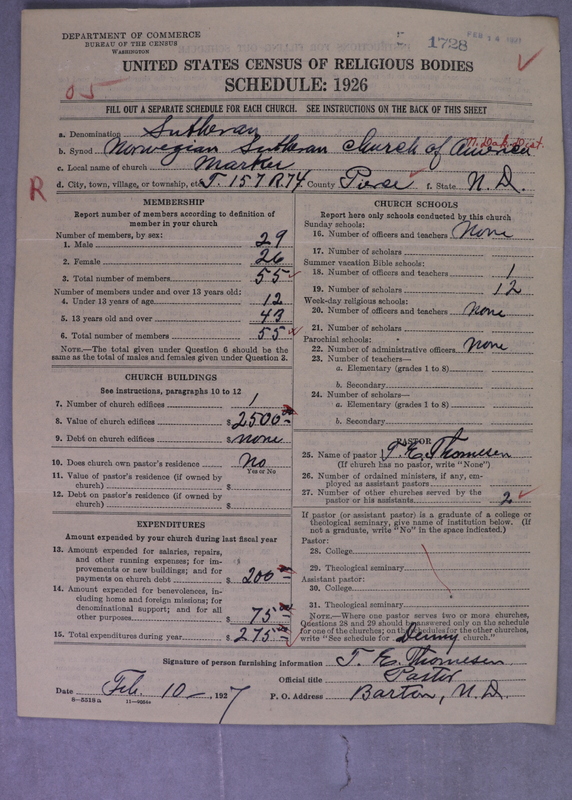 DEPARTMENT OF COMMERCE
BUREAU OF THE CENSUS
WASHINGTON
1728
FEB 14 1927
UNITED STATES CENSUS OF RELIGIOUS BODIES
SCHEDULE: 1926
05
FILL OUT A SEPARATE SCHEDULE FOR EACH CHURCH. SEE INSTRUCTIONS ON THE BACK OF THIS SHEET
a. Denomination Lutheran
N. Dak. Dist.
b. Synod Norwegian Lutheran Church of America
c. Local name of church
d. City, town, village, or township, etc. T. 157 R. 74. County Pierce f. State N. D.
R
MEMBERSHIP
Report number of members according to definition of member in your church
Number of members, by sex:
1. Male 29
2. Female 26
3. Total number of members 55
Number of members under and over 13 years old:
4. Under 13 years of age 12
5. 13 years old and over 43
6. Total number of members 55
NOTE.—The total given under Question 6 should be the same as the total of males and females given under Question 3.
CHURCH BUILDINGS
See instructions, paragraphs 10 to 12
7. Number of church edifices 1
8. Value of church edifices $2500
9. Debt on church edifices $none
10. Does church own pastor's residence No
Yes or No
11. Value of pastor's residence (if owned by church) $
12. Debt on pastor's residence (if owned by church) $
EXPENDITURES
Amount expended by your church during last fiscal year
13. Amount expended for salaries, repairs, and other running expenses; for improvements or new buildings; and for payments on church debt $200
14. Amount expended for benevolences, including home and foreign missions; for denominational support; and for all other purposes $75
15. Total expenditures during year $275
CHURCH SCHOOLS
Report here only schools conducted by this church
Sunday schools:
16. Number of officers and teachers None
17. Number of scholars
Summer vacation Bible schools:
18. Number of officers and teachers 1
19. Number of scholars 12
Week-day religious schools:
20. Number of officers and teachers None
21. Number of scholars
Parochial schools:
22. Number of administrative officers None
23. Number of teachers—
a. Elementary (grades 1 to 8)
b. Secondary
24. Number of scholars—
a. Elementary (grades 1 to 8)
b. Secondary
PASTOR
25. Name of pastor T. E. Thomesen
(If church has no pastor, write "None")
26. Number of ordained ministers, if any, employed as assistant pastors
27. Number of other churches served by the pastor or his assistants 2
If pastor (or assistant pastor) is a graduate of a college or theological seminary, give name of institution below. (If not a graduate, write "No" in the space indicated.)
Pastor:
28. College
29. Theological seminary
Assistant pastor:
30. College
31. Theological seminary
NOTE.—Where one pastor serves two or more churches, Questions 28 and 29 should be answered only on the schedule for one of the churches; on the schedules for the other churches, write "See schedule for Denny church."
Signature of person furnishing information T. E. Thomesen
Official title Pastor
Date Feb. 10 -, 1927
P. O. Address Barton, N. D.
8—5518a